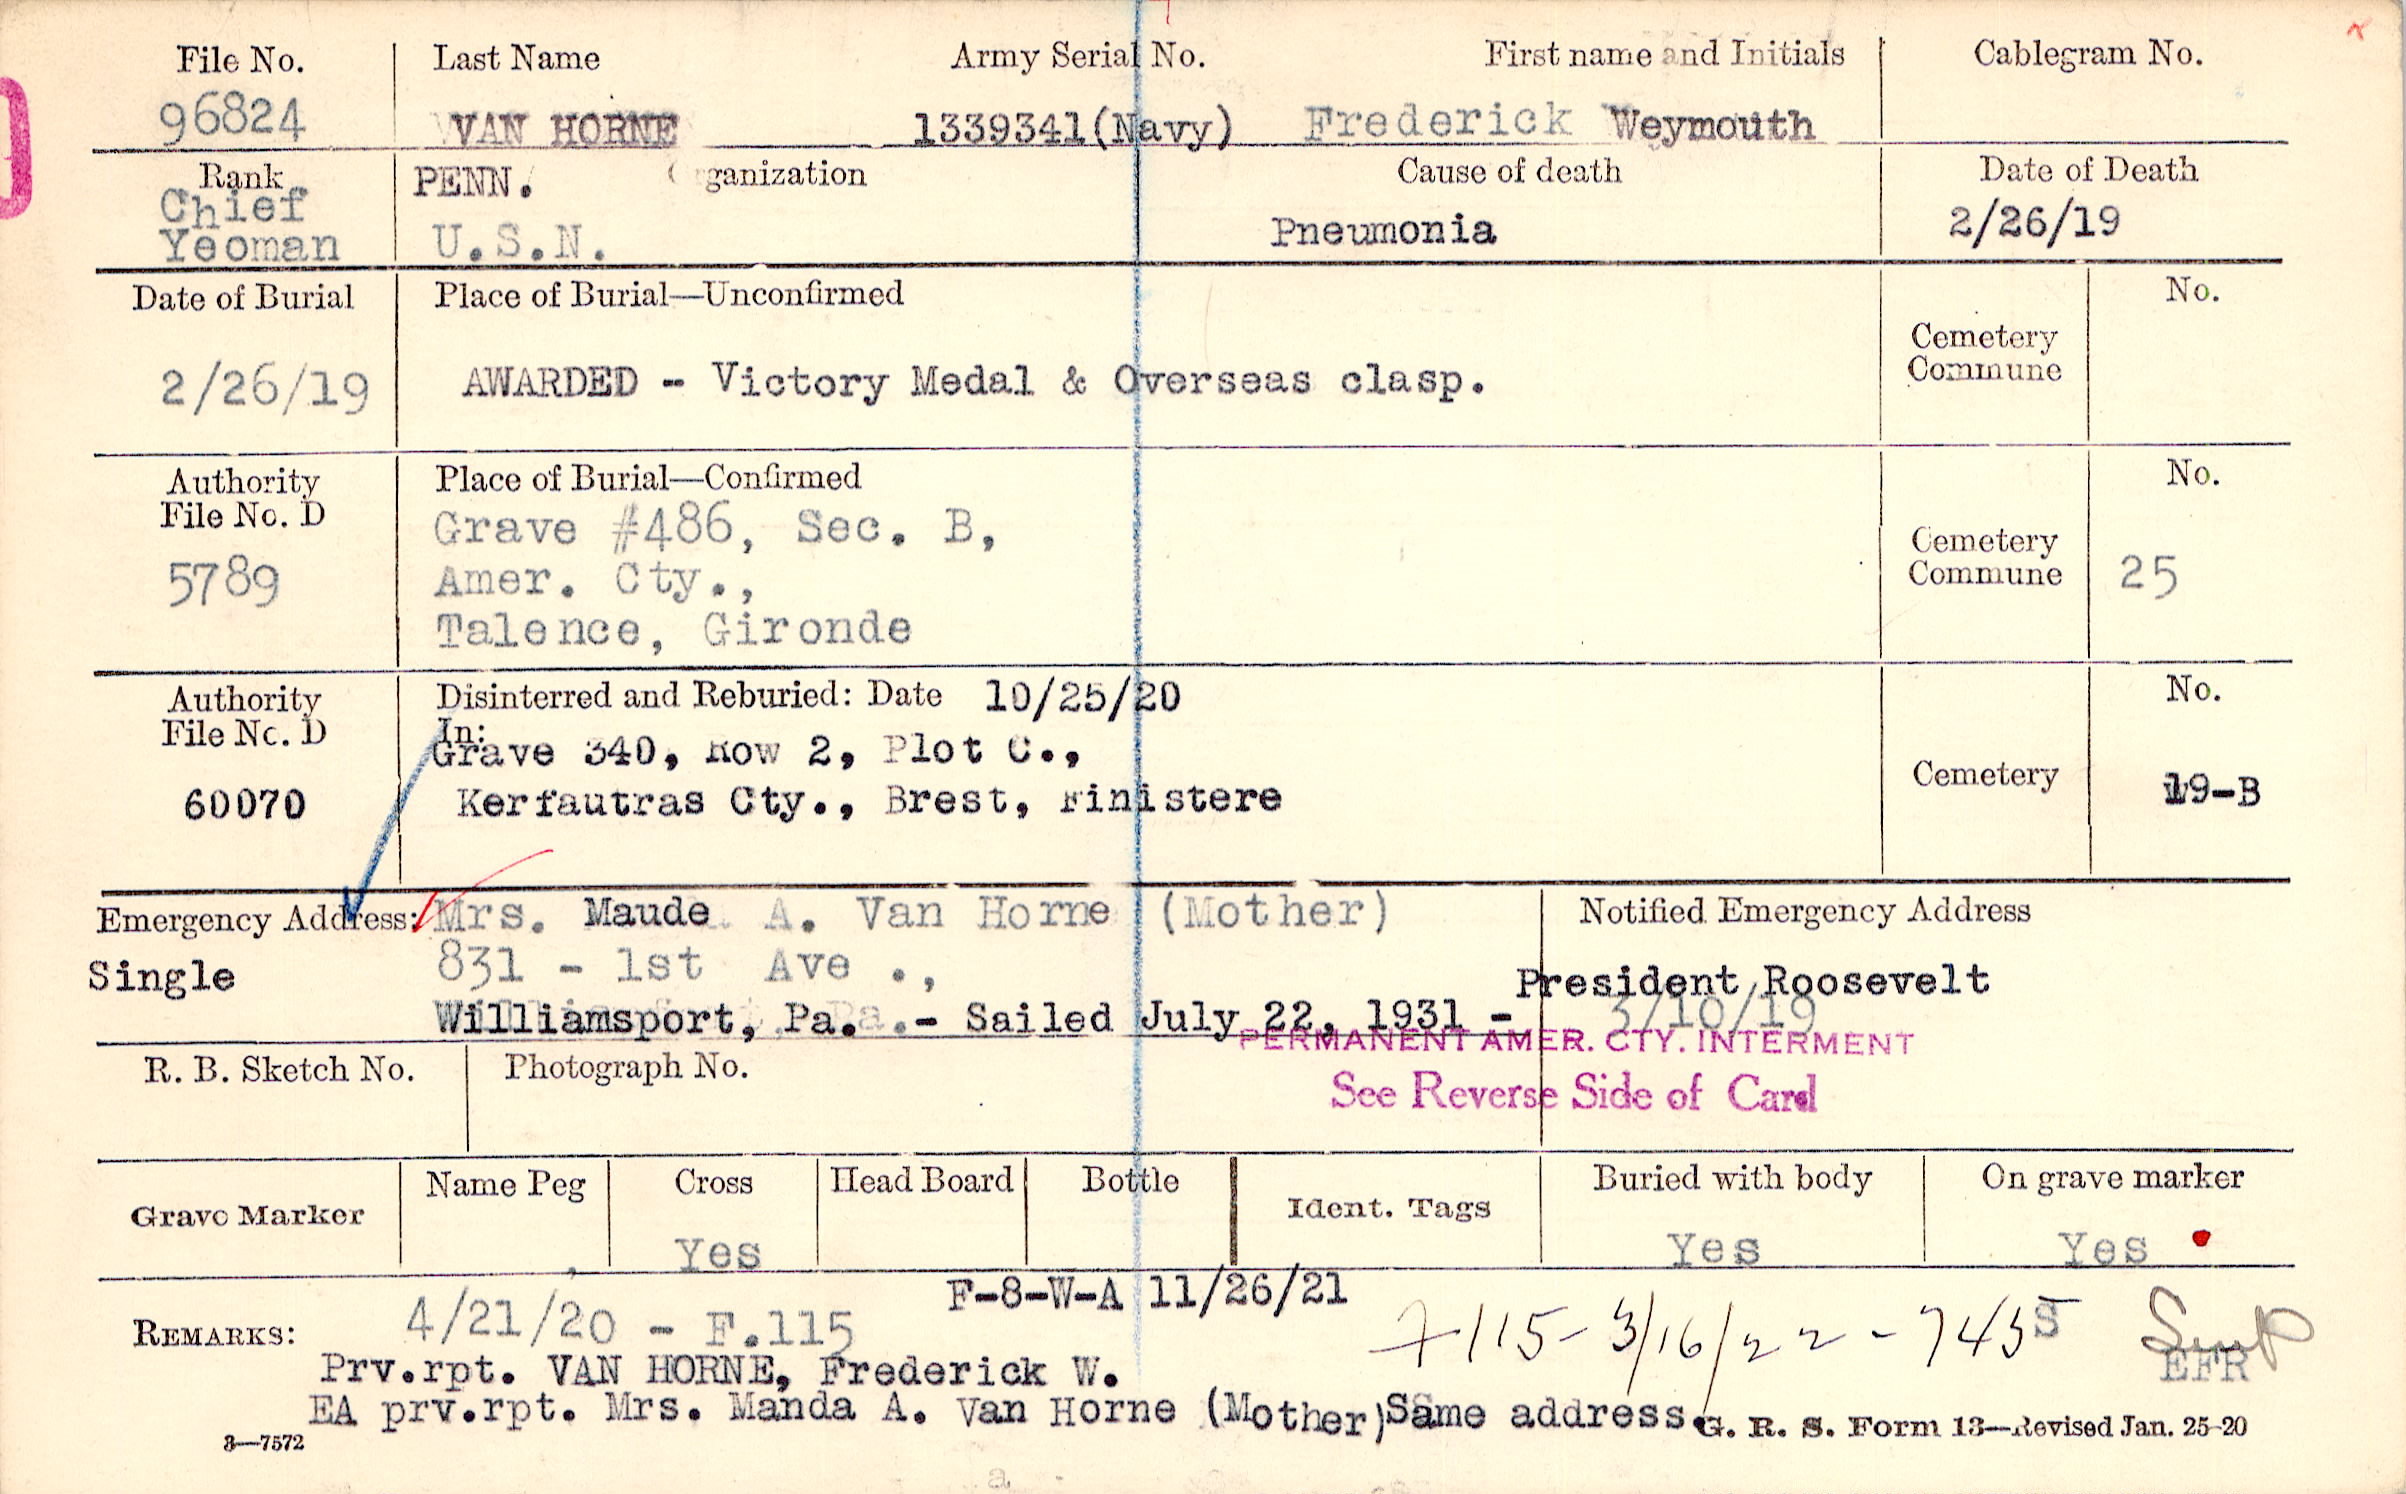 File No. Last Name Army Serial No. First name and Initials Cablegram No.
96824 VAN HORNE 1339341(Navy) Frederick Weymouth
Rank PENN. Organization Cause of death Date of Death
Chief Yeoman U.S.N. Pneumonia 2/26/19
Date of Burial Place of Burial—Unconfirmed No.
Cemetery
Commune
2/26/19 AWARDED - Victory Medal & Overseas clasp.
Authority Place of Burial—Confirmed No.
File No. D Grave #486, Sec. B,
Cemetery
5789 Amer. Cty., Commune 25
Talence, Gironde
Authority Disinterred and Reburied: Date 10/25/20 No.
File No. D In:
Grave 340, Row 2, Plot C.,
Cemetery
60070 Kerfautras Cty., Brest, Finistere 19-B
Emergency Address: Mrs. Maude A. Van Horne (Mother) Notified Emergency Address
Single 831 - 1st Ave ., President Roosevelt
Williamsport, Pa. - Sailed July 22, 1931 - 3/10/19
PERMANENT AMER. CTY. INTERMENT
R. B. Sketch No. Photograph No.
See Reverse Side of Card
Name Peg Cross Head Board Bottle Buried with body On grave marker
Grave Marker Ident. Tags
Yes Yes Yes
F-8-W-A 11/26/21
REMARKS: 4/21/20 - F.115 7115- 3/16/22 - 745S
EFR
Prv.rpt. VAN HORNE, Frederick W.
EA prv.rpt. Mrs. Manda A. Van Horne (Mother)Same address.
3—7572 G. R. S. Form 13—Revised Jan. 25-20